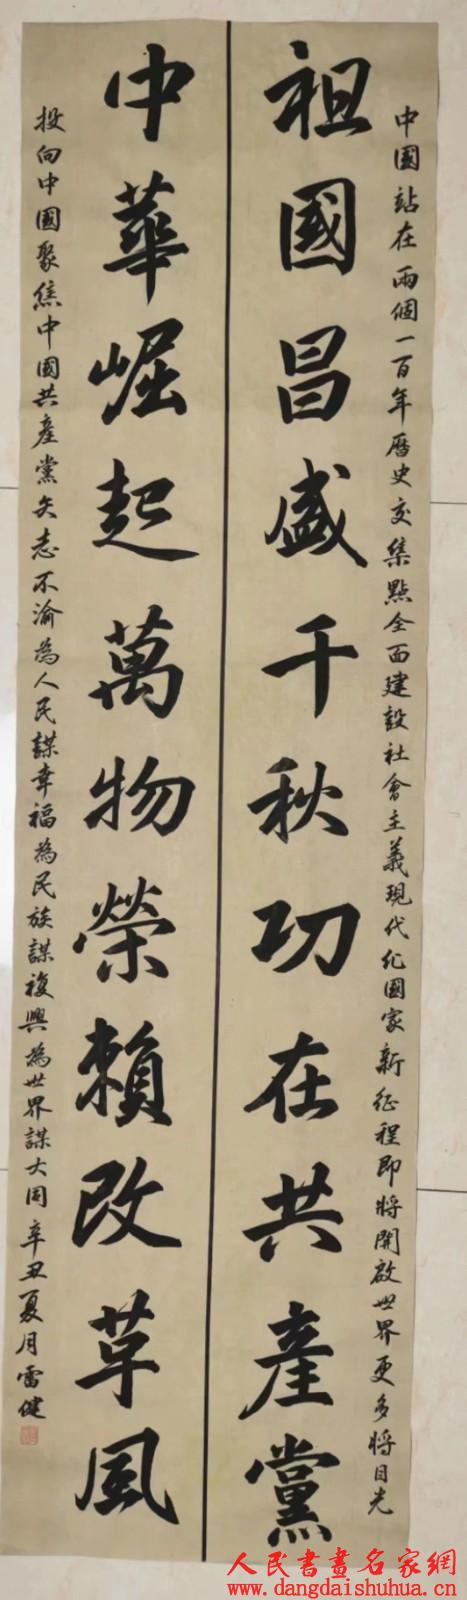 中國站在兩個一百年曆史交集點全面建設社會主義現代化國家新征程即將開啟世界更多將目光
祖國昌盛千秋功在共產黨
中華崛起萬物榮賴改草風
投向中國聚焦中國共產黨矢志不渝為人民謀幸福為民族謀複興為世界謀大同辛丑夏月雷健
人民書畫名家網
www.dangdaishuhua.cn